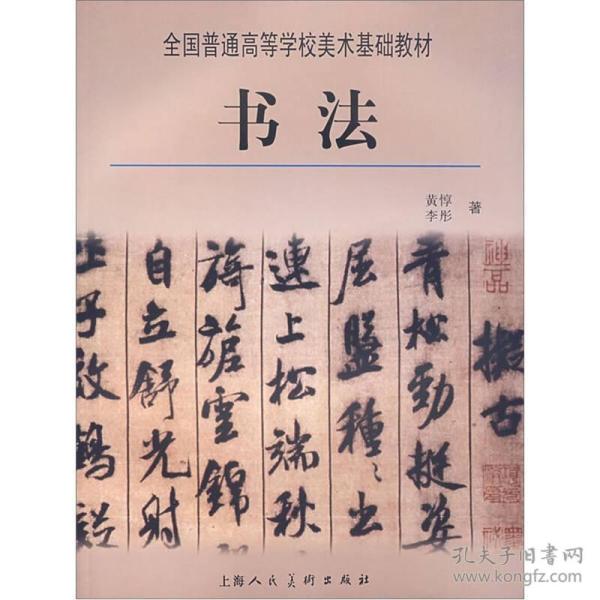 全国普通高等学校美术基础教材
书法
黄惇
李彤 著
擬古
青松勁挺姿
屈盤種々出
連上松端秋
旖旎雲錦
自立舒光射
子效鶴
上海人民美術出版社
孔夫子旧书网
www.kongfz.com